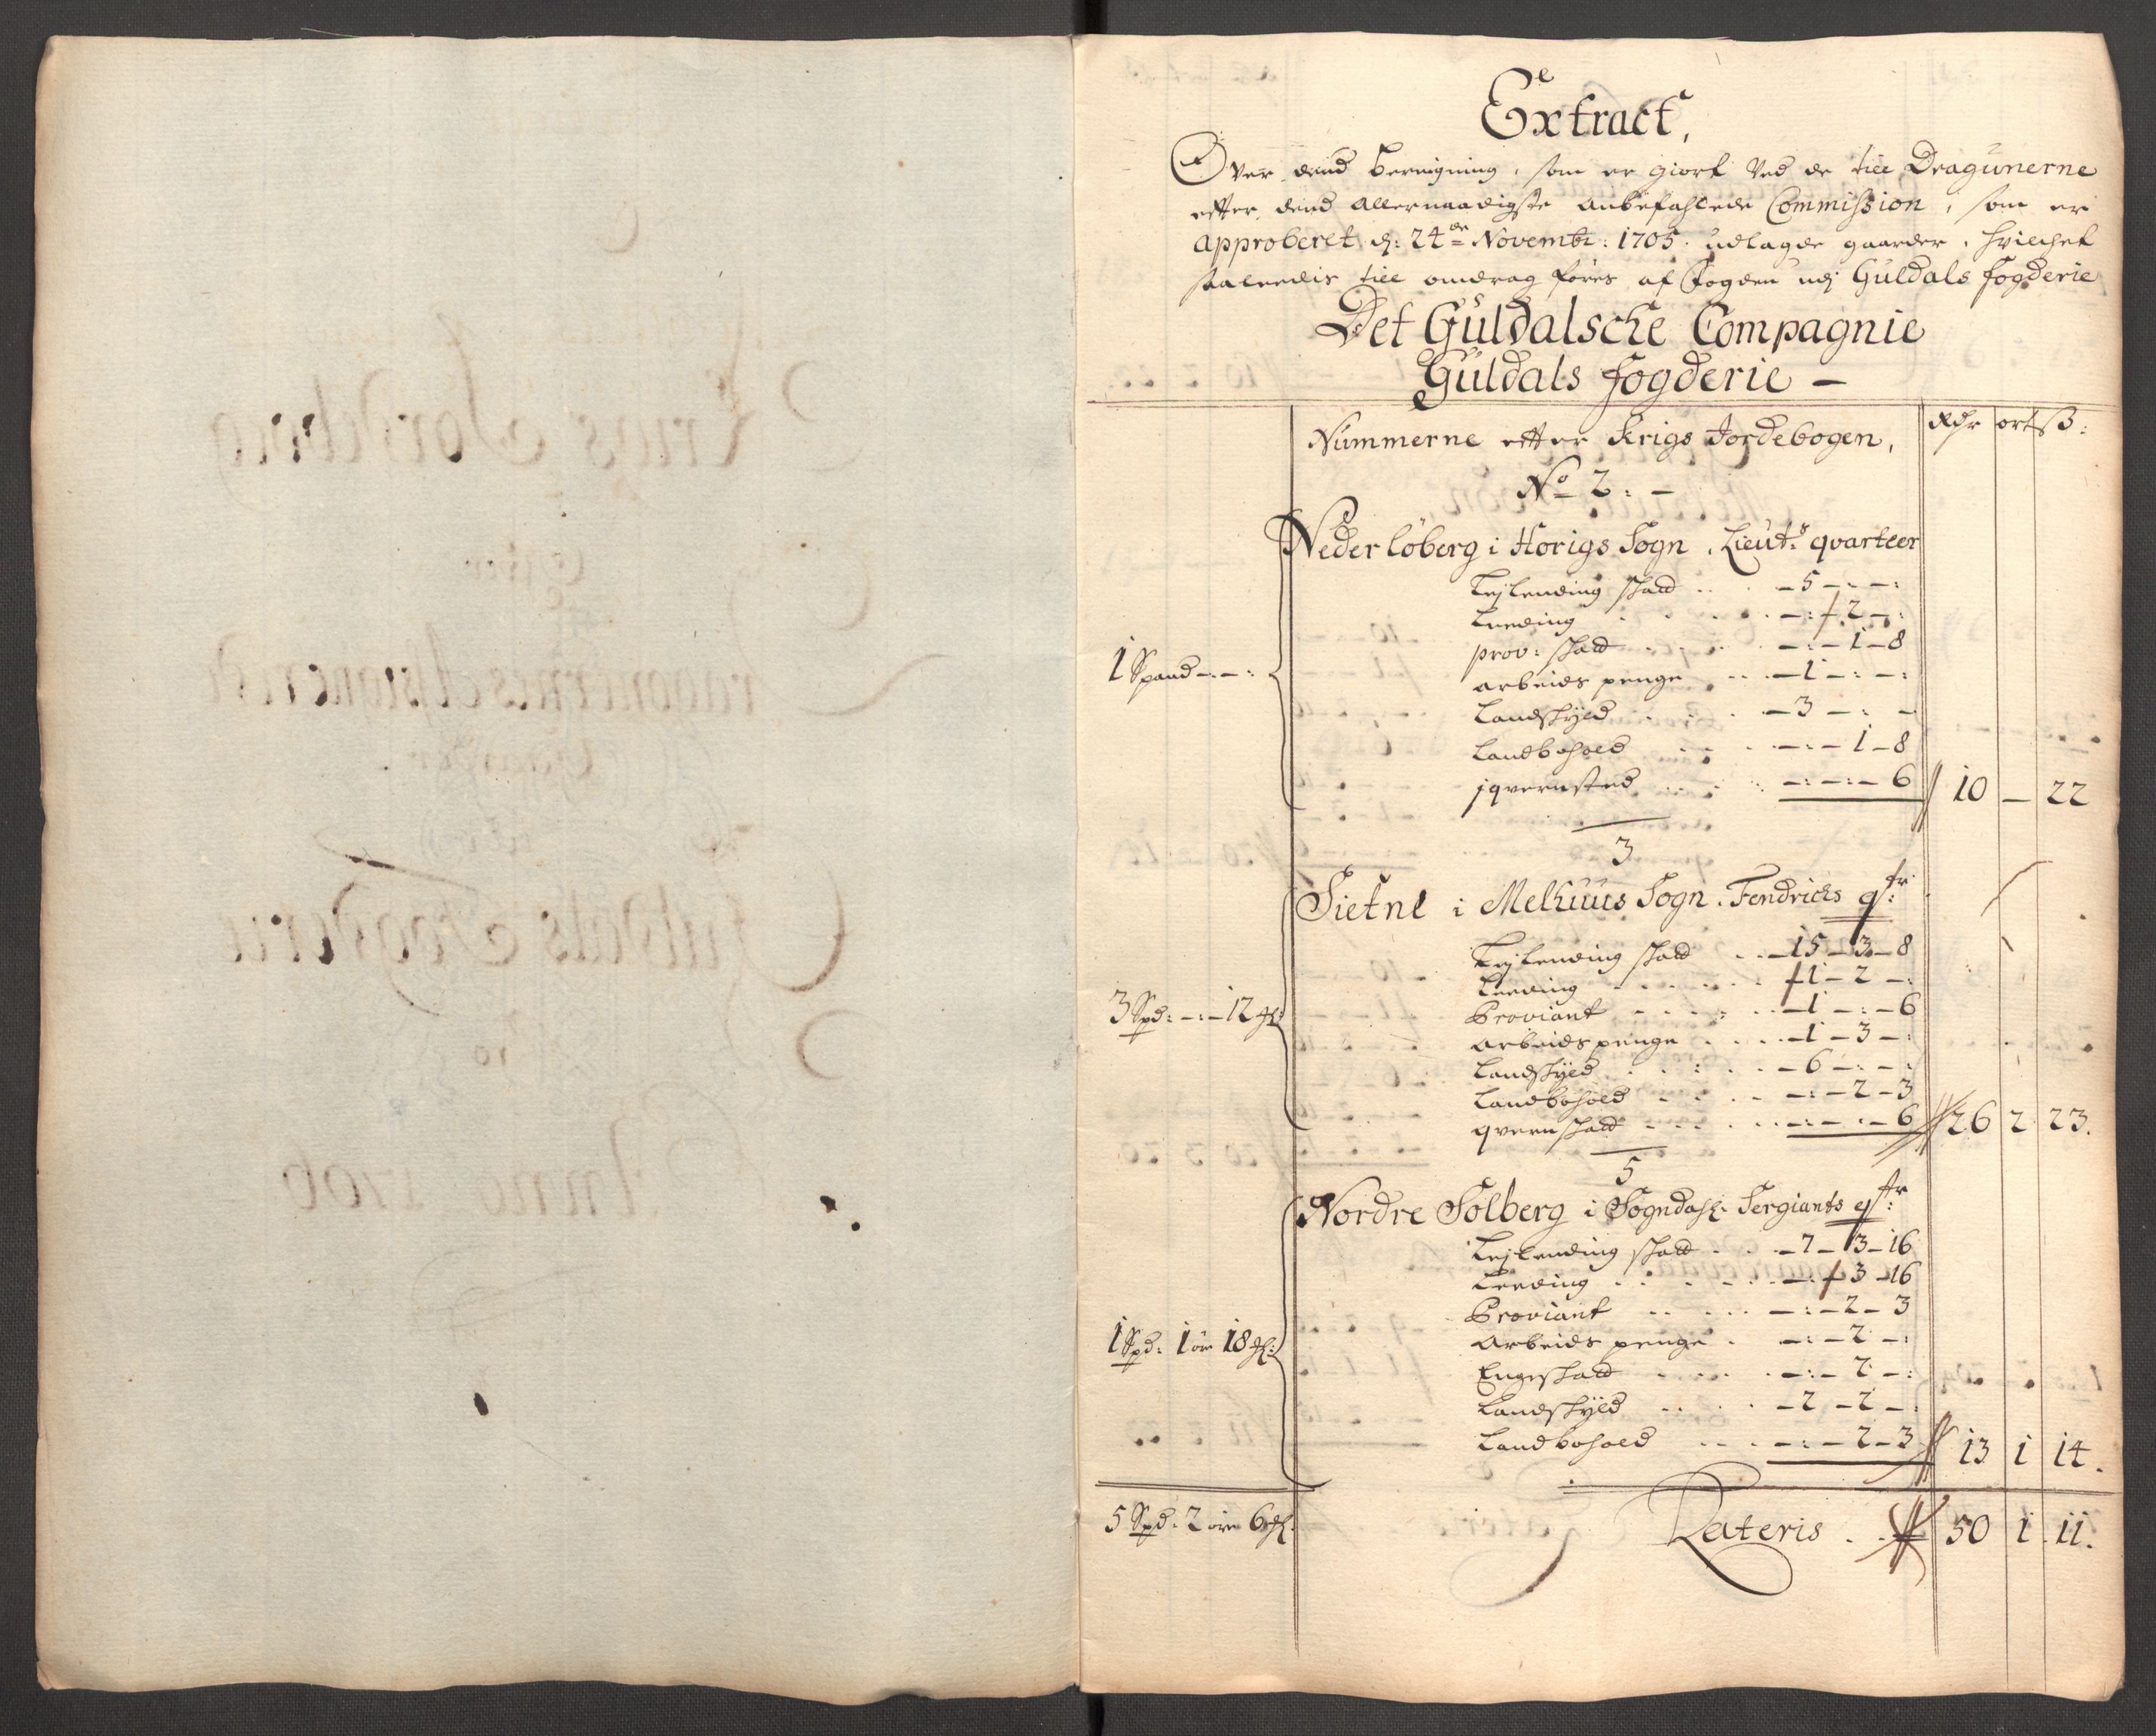 Extract,
Over dend berigning, som er giort Ved de till Dragunerne
efter dend Allernaadigste anbefahlede Commission, som er
approberet d: 24de Novembr: 1705. udlagde gaarder, hvilchet
saaledis till omdrag føres af Fogden udj Guldals fogderie
Det Guldalsche Compagnie
Guldals fogderie —
Nummerne efter Krigs Jordebogen,
Rdr ort ß:
No 2: —
Nederløberg i Horigs Sogn, Lieuts qvarteer
1 Spand -.-:
Lejlending skatt . . . — 5 — : — :
Leeding . . . — : — 2 — :
prov: skatt . . . — : — 1 — 8
arbeids penge . . . — 1 — : — :
Landskyld . . . — 3 — : —
Landbohold . . . — : — 1 — 8
qvernsted . . . — : — : — 6 10 — 22
3
Sietne i Melhuus Sogn. Fendrichs qtr:
3 Spd: — : — 12 ß:
Lejlending skatt . . . 15 — 3 — 8
Leeding . . . 1 — 2 — :
Proviant . . . — 1 — : — 6
arbeids penge . . . — 1 — 3 — :
Landskyld . . . — 6 — : — :
Landbohold . . . — : — 2 — 3
qvern skatt . . . — : — : — 6 26 2 23.
5
Nordre Solberg i Sogndahl Sergiants qtr:
1 Spd: 1 ør 18 ß:
Lejlending skatt . . . — 7 — 3 — 16
Leeding . . . — : — 3 — 16
Proviant . . . — : — 2 — 3
Arbeids penge . — : — 2 — :
Engeskatt . . . — : — 2 — :
Landskyld . . . — 2 — 2 — :
Landbohold . . . — : — 2 — 3 13 1 14.
5 Spd: 2 ører 6 ß: Lateris . . 50 1 11.